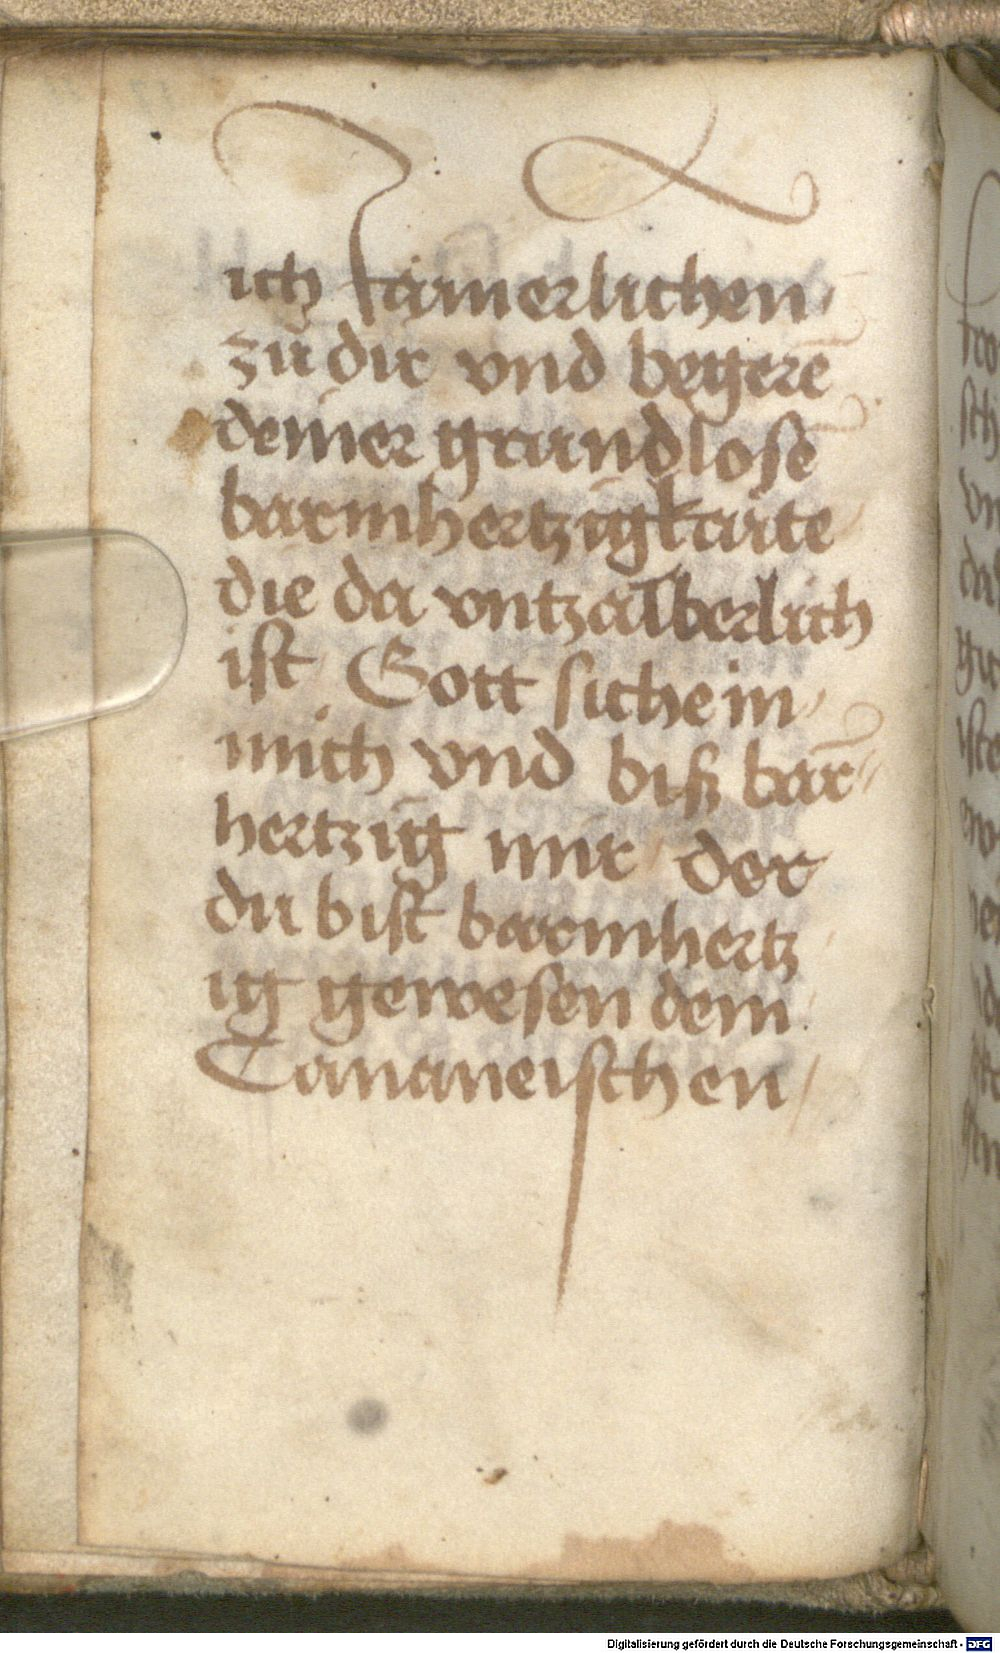 ich iämerlichen
zů dir vnd begerē
deiner grundlosē
barmhertzigkaite
die da vntzalberlich
ist Gott siche in
mich vnd biß bar̄
hertzig mir der
du bist barmhertz
ig gewesen dem
Cananeischen
Digitalisierung gefördert durch die Deutsche Forschungsgemeinschaft - DFG